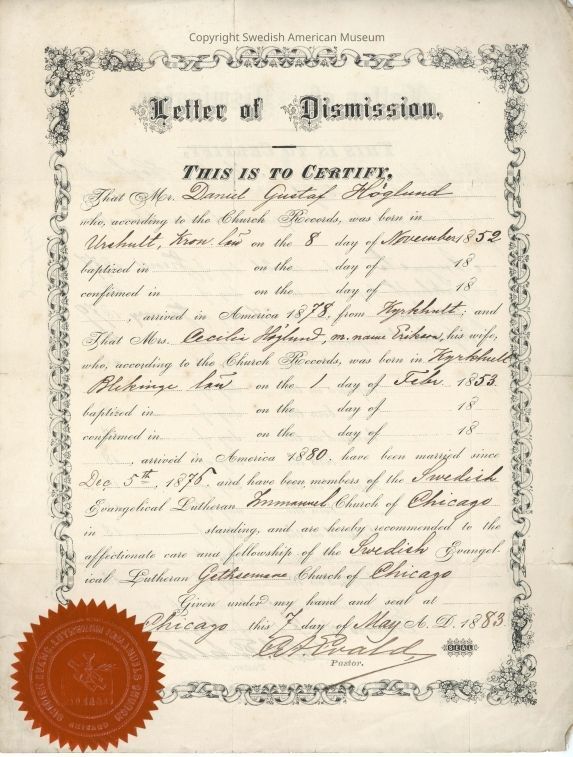 Copyright Swedish American Museum
Letter of Dismission.
THIS IS TO CERTIFY,
That Mr. Daniel Gustaf Höglund
who, according to the Church Records, was born in
Urshult, Kron. län on the 8 day of November 1852
baptized in on the day of 18
confirmed in on the day of 18
arrived in America 1878, from Kyrkhult; and
That Mrs. Cecilia Höglund, m. name Erikson, his wife,
who, according to the Church Records, was born in Kyrkhult
Blekinge län on the 1 day of Febr. 1853
baptized in on the day of 18
confirmed in on the day of 18
, arrived in America 1880, have been married since
Dec 5th, 1875, and have been members of the Swedish
Evangelical Lutheran Immanuel Church of Chicago
in standing, and are hereby recommended to the
affectionate care and fellowship of the Swedish Evangel-
ical Lutheran Gethsemane Church of Chicago
Given under my hand and seal at
Chicago this 7 day of May A. D. 1883.
C. A. Evald
SEAL
Pastor.
CHICAGO